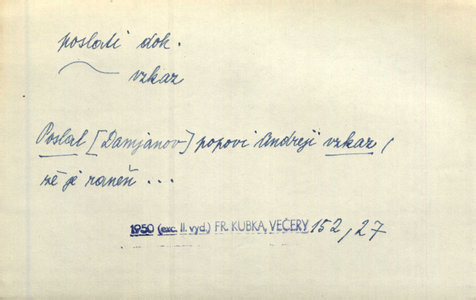 poslati dok.
vzkaz
Poslal [Damjanov] popovi Andreji vzkaz,
že je raněn ...
1950 (exc. II. vyd.) FR. KUBKA, VEČERY 152, 27